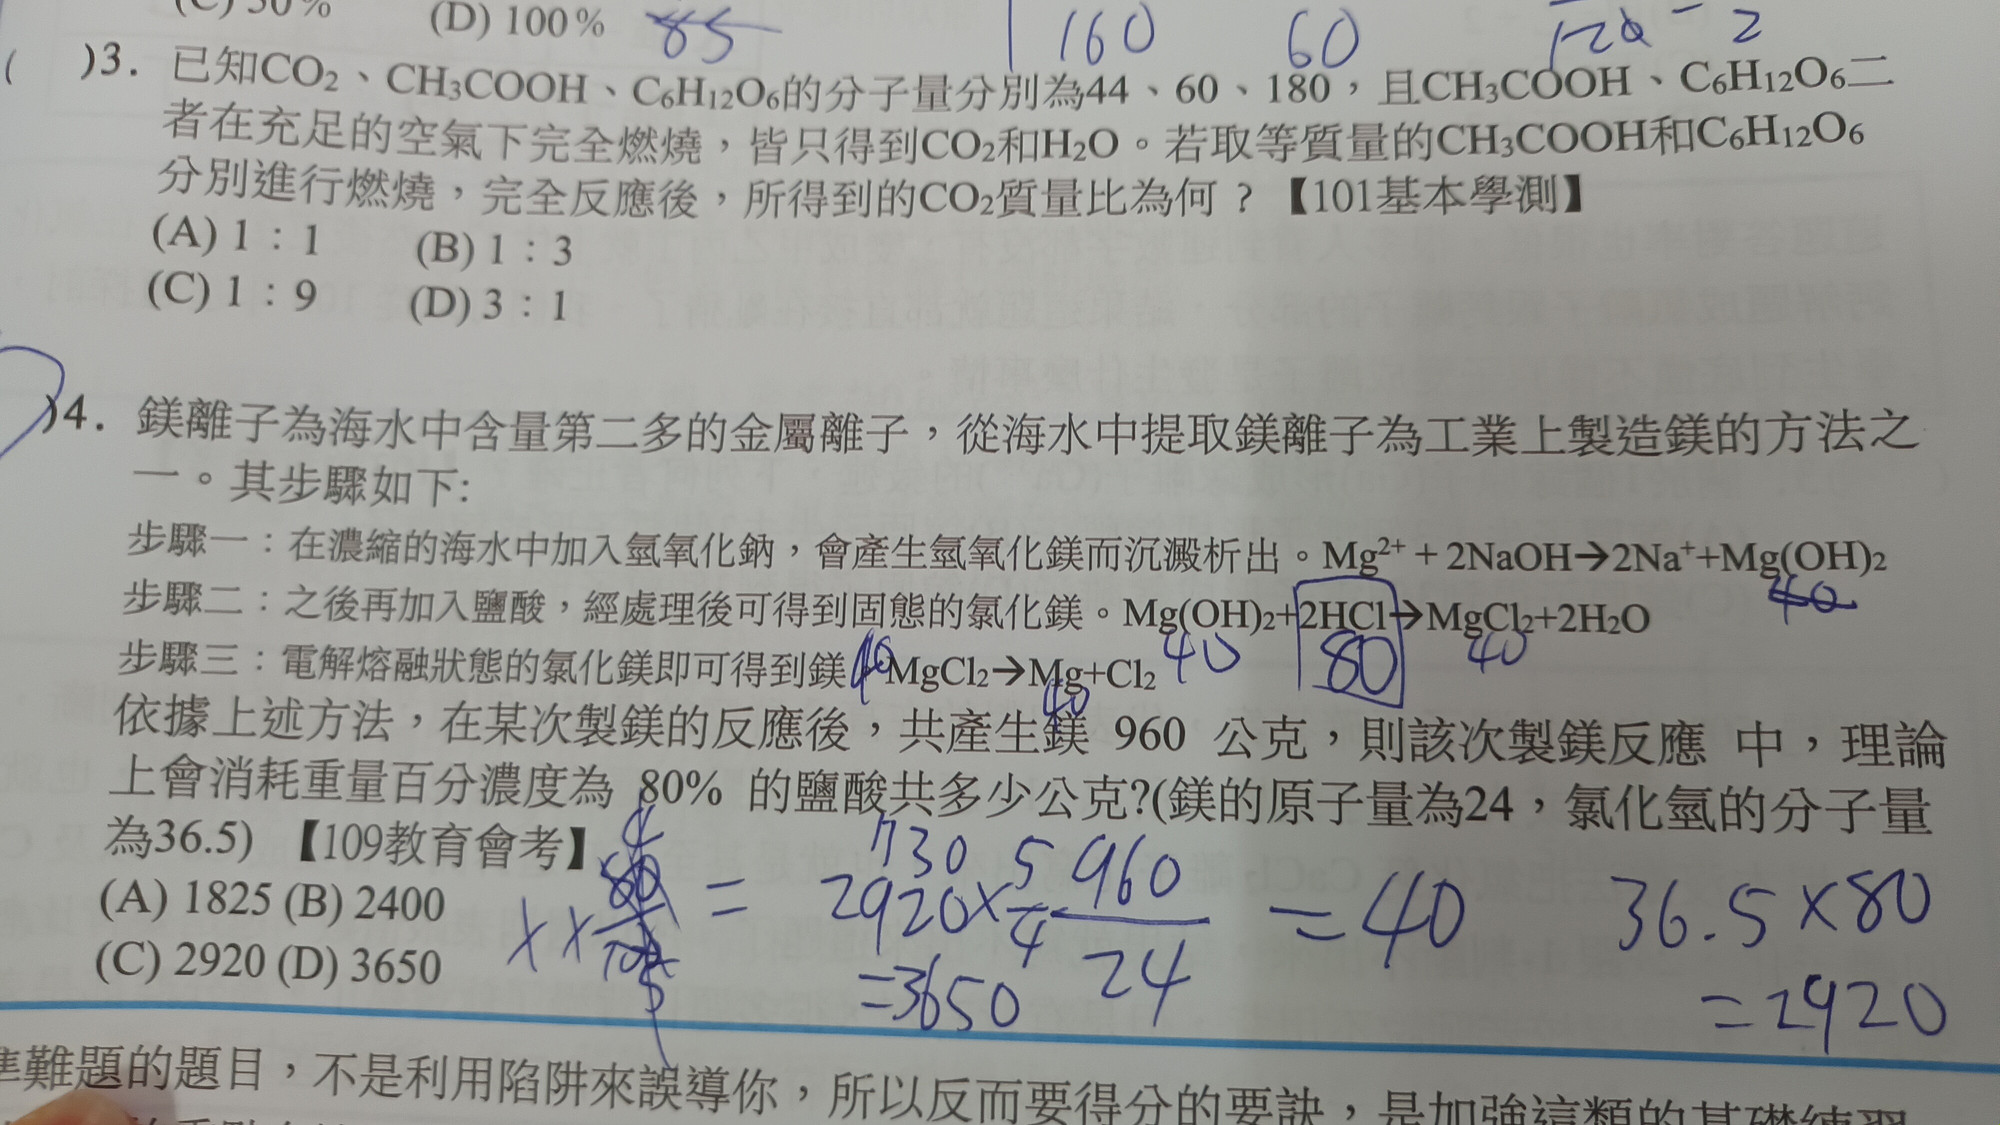 (C) 50% (D) 100% 85 160 60 120 2
( )3. 已知CO₂、CH₃COOH、C₆H₁₂O₆的分子量分別為44、60、180，且CH₃COOH、C₆H₁₂O₆二
者在充足的空氣下完全燃燒，皆只得到CO₂和H₂O。若取等質量的CH₃COOH和C₆H₁₂O₆
分別進行燃燒，完全反應後，所得到的CO₂質量比為何？【101基本學測】
(A) 1：1 (B) 1：3
(C) 1：9 (D) 3：1
)4. 鎂離子為海水中含量第二多的金屬離子，從海水中提取鎂離子為工業上製造鎂的方法之
一。其步驟如下:
步驟一：在濃縮的海水中加入氫氧化鈉，會產生氫氧化鎂而沉澱析出。Mg²⁺ + 2NaOH→2Na⁺+Mg(OH)₂
40
步驟二：之後再加入鹽酸，經處理後可得到固態的氯化鎂。Mg(OH)₂+2HCl→MgCl₂+2H₂O
40 80 40
步驟三：電解熔融狀態的氯化鎂即可得到鎂 MgCl₂→Mg+Cl₂
40 40
依據上述方法，在某次製鎂的反應後，共產生鎂 960 公克，則該次製鎂反應 中，理論
上會消耗重量百分濃度為 80% 的鹽酸共多少公克?(鎂的原子量為24，氯化氫的分子量
為36.5) 【109教育會考】
(A) 1825 (B) 2400
(C) 2920 (D) 3650
4
X × 80/100 = 2920 × 5/4
5
730
=3650
960/24 = 40
36.5×80
=2920
準難題的題目，不是利用陷阱來誤導你，所以反而要得分的要訣，是加強這類的基礎練習